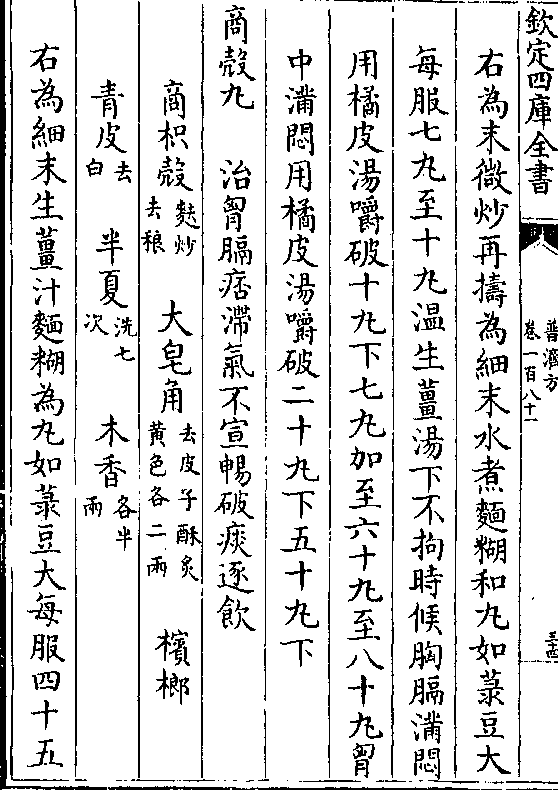 欽定四庫全書
普濟方
卷一百八十一
三十四
右為末微炒再擣為細末水煮麵糊和丸如菉豆大
每服七丸至十丸溫生薑湯下不拘時候胸膈滿悶
用橘皮湯嚼破十丸下七丸加至六十丸至八十丸胃
中滿悶用橘皮湯嚼破二十丸下五十丸下
商殼丸 治胃膈痞滯氣不宣暢破痰逐飲
商枳殼麩炒去穰 大皂角去皮子酥炙黃色各二兩 檳榔
青皮去白 半夏洗七次 木香各半兩
右為細末生薑汁麵糊為丸如菉豆大每服四十五